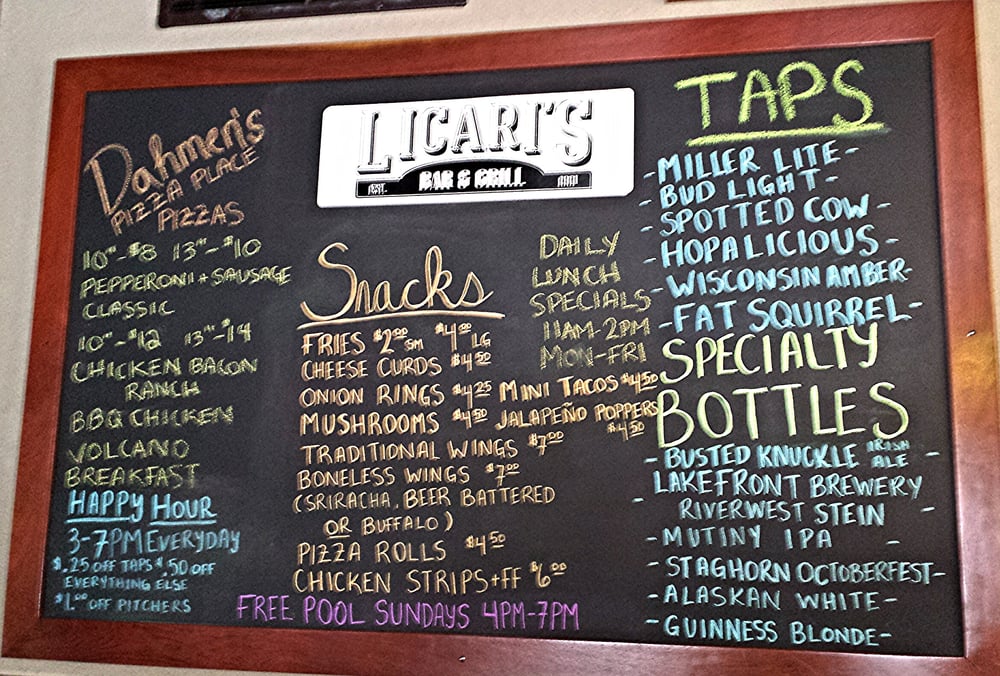 Dahmen's
PIZZA PLACE
PIZZAS
10"-$8 13"-$10
PEPPERONI + SAUSAGE
CLASSIC
10"-$12 13"-$14
CHICKEN BACON
RANCH
BBQ CHICKEN
VOLCANO
BREAKFAST
HAPPY HOUR
3-7PM EVERYDAY
$.25 OFF TAPS $.50 OFF
EVERYTHING ELSE
$1.00 OFF PITCHERS
LICARI'S
BAR & GRILL
EST.
Snacks
FRIES $2.00 SM $4.00 LG
CHEESE CURDS $4.50
ONION RINGS $4.25 MINI TACOS $4.50
MUSHROOMS $4.50 JALAPEÑO POPPERS
$4.50
TRADITIONAL WINGS $7.00
BONELESS WINGS $7.00
(SRIRACHA, BEER BATTERED
OR BUFFALO)
PIZZA ROLLS $4.50
CHICKEN STRIPS+FF $6.00
FREE POOL SUNDAYS 4PM-7PM
DAILY
LUNCH
SPECIALS
11AM-2PM
MON-FRI
TAPS
-MILLER LITE-
-BUD LIGHT-
-SPOTTED COW-
-HOPALICIOUS-
-WISCONSIN AMBER-
-FAT SQUIRREL-
SPECIALTY
BOTTLES
-BUSTED KNUCKLE IRISH ALE-
-LAKEFRONT BREWERY
RIVERWEST STEIN -
-MUTINY IPA -
-STAGHORN OCTOBERFEST-
-ALASKAN WHITE-
-GUINNESS BLONDE-